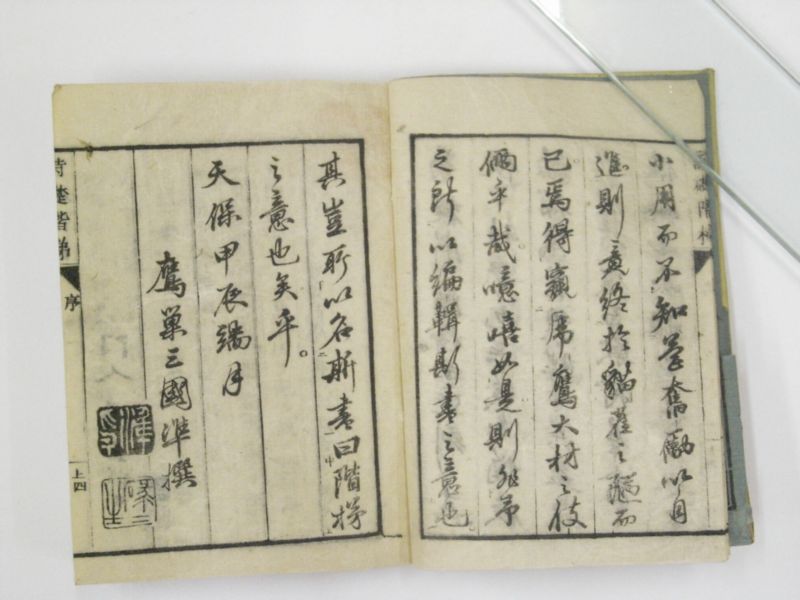 小用而不知學奮勵以自
進則竟終於貓雀之陋而
已焉得窺虎鷹大材之伎
倆乎哉噫嘻如是則非予
之所以編輯斯書之意也
其豈所以名斯書曰階梯
之意也矣乎。
天保甲辰端月
鷹巢三國準撰
詩礎階梯
序
上四